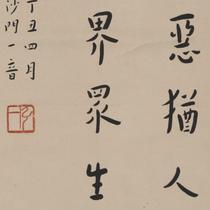 惡猶人
界眾生
丁丑四月
沙門一音